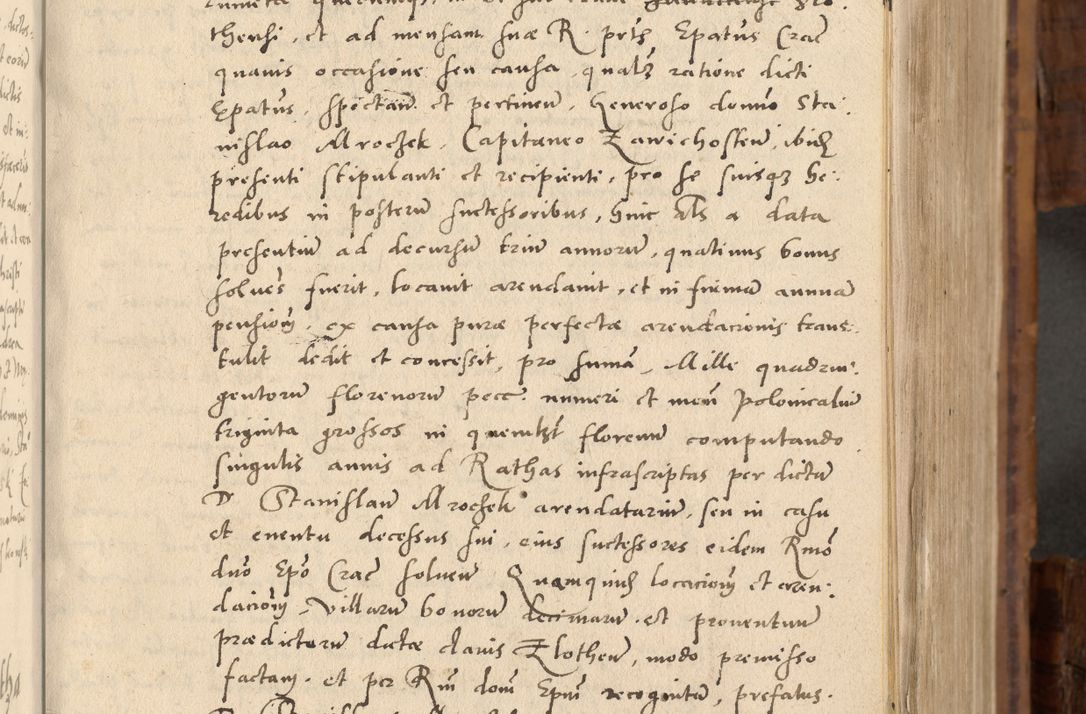 thensi, et ad mensam suæ R. prts Epatus Crac
quavis occasione seu causa, qualz ratione dicti
Epatus, spectan. et pertinen. Generoso domno Sta:
nislao Mroczek, Capitaneo Zawichosten, ibidz
presenti stipulanti et recipienti, pro se suisqz he:
redibus in posterum successoribus, hinc als a data
presentium ad decursum trium annorum, quatinus bonus
solues fuerit, locauit arendauit, et in firmam annuam
pensionem, ex causa puræ perfectæ arendacionis trans:
tulit dedit et concessit, pro summa, Mille quadrin:
gentorum florenorum pecc. numeri et mon Polonicaliu
triginta grossos in quemlibt florenum computando
singulis annis ad Rathas infrascriptas per dictum
D Stanislaum Mroczek arendatarium, seu in casu
et euentu decessus sui, eius successores eidem Rmo
dno Epo Crac soluen. Quamquidz locacionem et aren:
dacionem, villarum bonorum decimarum et prouentuum
prædictorum dictæ clauis Zlothen, modo premisso
factam, et per Rm dom Epm recognitam, prefatus.